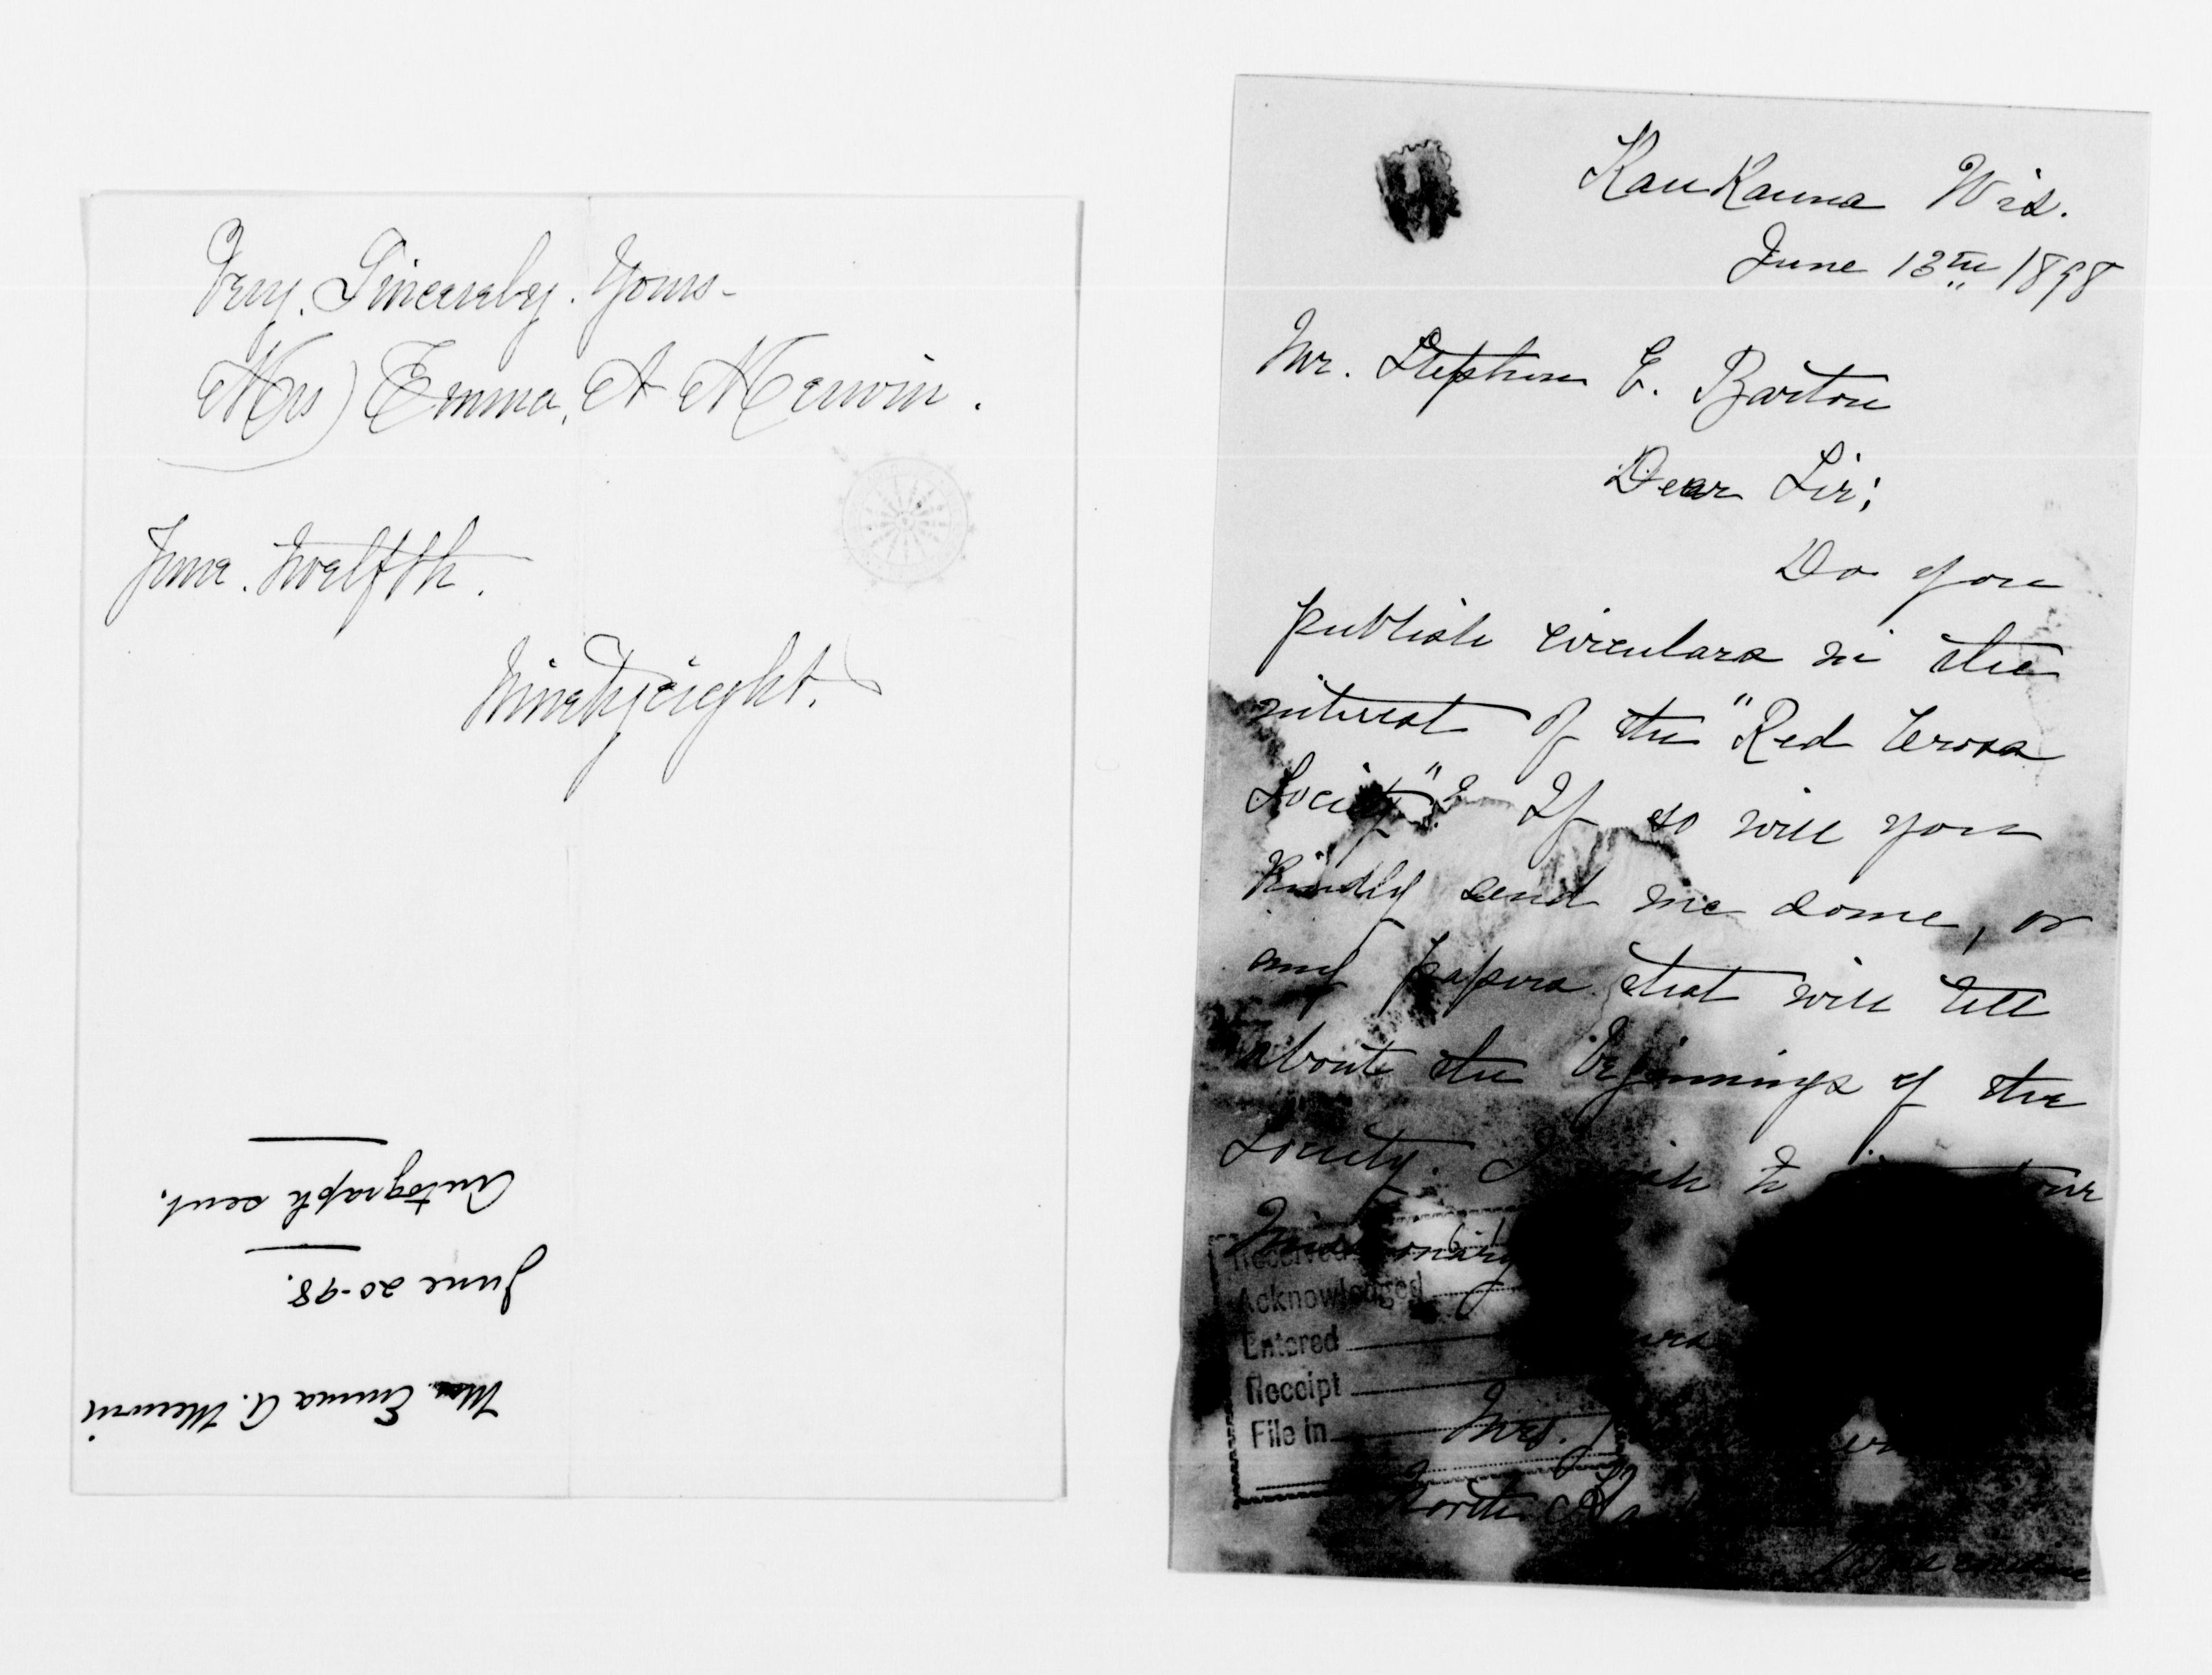 Very. Sincerely. Yours-
Mrs) Emma. A Merwin.
June. twelfth.
Ninetyeight.
Mrs. Emma A. Merwin
June 20-98.
Autograph sent.
Kaukauna Wis.
June 13th 1898
Mr. Stephen E. Barton
Dear Sir;
Do you
publish circulars in the
interest of the "Red Cross
Society"? If so will you
kindly send me some, or
any papers that will tell
about the beginnings of the
Society. I wish to our
Missionary
Received
Acknowledged
Entered
Receipt
File in
Mrs.
North